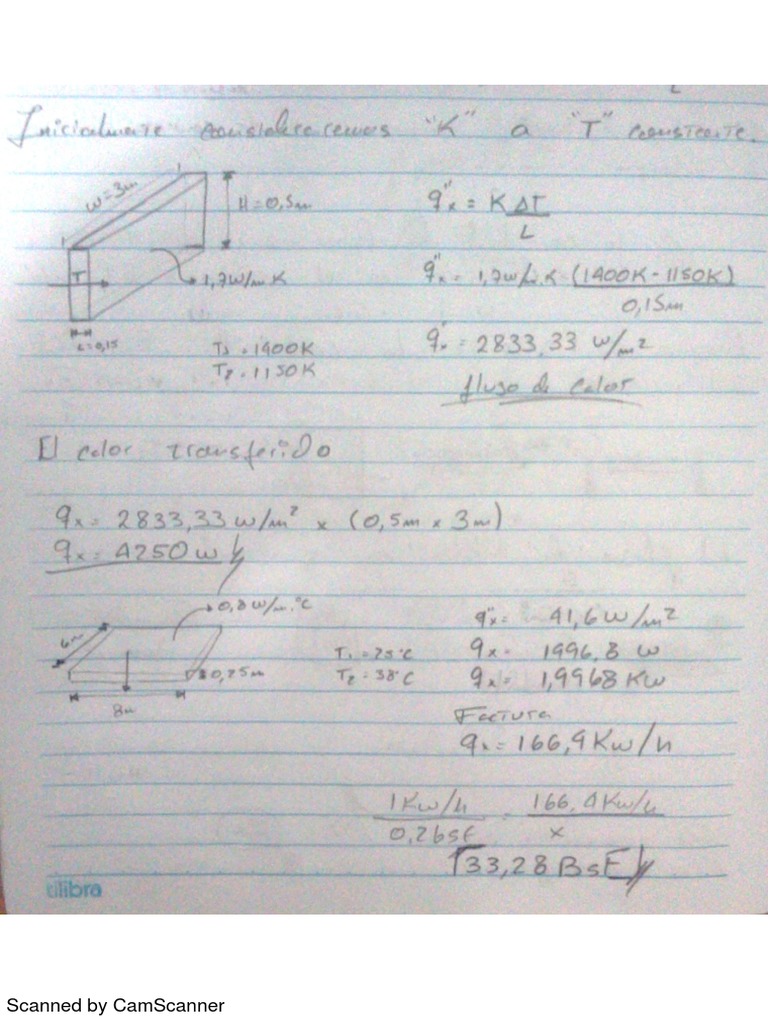 Inicialmente consideraremos "K" a "T" constante.
W=3m
H=0,5m
q"x = K ΔT
L
T
1,7w/m K
q"x = 1,7w/m.K (1400K-1150K)
0,15m
L=0,15
T1 = 1400K
T2 = 1150K
q"x = 2833,33 w/m²
fluso de calor
El calor transferido
qx = 2833,33 w/m² x (0,5m x 3m)
qx = 4250w
0,8w/m.°C
6m
0,25m
8m
T1 = 25°C
T2 = 38°C
q"x = 41,6w/m²
qx = 1996,8 w
qx = 1,9968 Kw
Factura
qx = 166,4Kw/h
1Kw/h = 166,4Kw/h
0,2bsF x
33,28 BsF
tilibra
Scanned by CamScanner